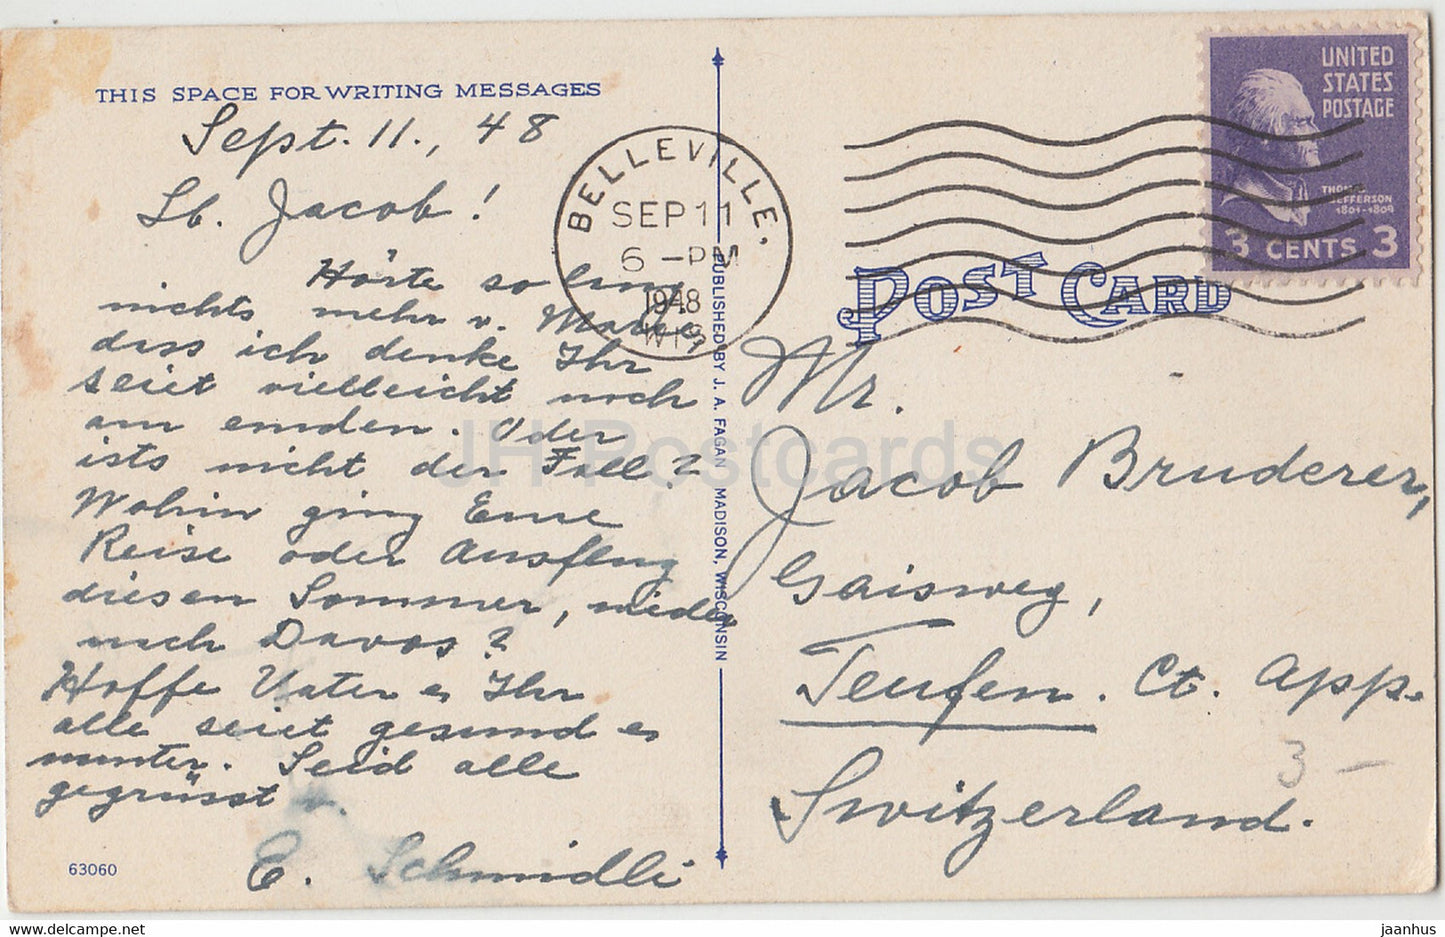 THIS SPACE FOR WRITING MESSAGES
Sept. 11., 48
Lb. Jacob!
Hörte so lang
nichts mehr v.
dass ich denke Ihr
seiet vielleicht noch
am emden. Oder
ists nicht der Fall?
Wohin ging Eure
Reise oder Ausflug
diesen Sommer, wieder
nach Davos?
Hoffe Vater & Ihr
alle seiet gesund &
munter. Seid alle
gegrüsst v.
E. Schmidli
63060
BELLEVILLE,
SEP 11
6 - PM
1948
WIS
PUBLISHED BY J. A. FAGAN MADISON, WISCONSIN
UNITED
STATES
POSTAGE
THOMAS
JEFFERSON
1801-1809
3 CENTS 3
POST CARD
Mr.
Jacob Bruderer,
Gaisweg,
Teufen. Ct. App.
Switzerland.
3 -
JH Postcards
hip.com/jaanhus